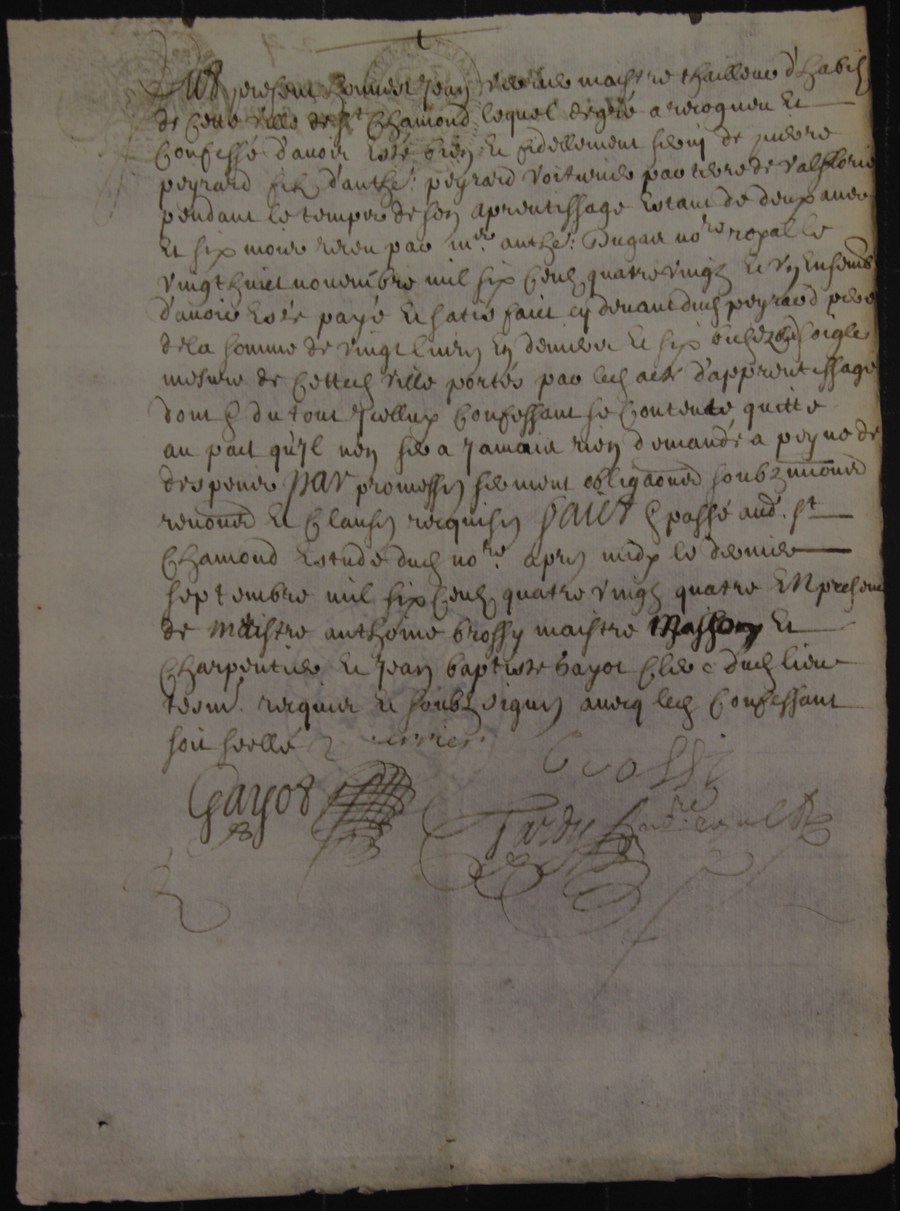 t
present Jean maistre tailleur d'habitz
de cette ville de St Chamond lequel de gré a recogneu et
confessé d'avoir esté bien et fidellement servy de pierre
peyrard filz d'anthe: peyrard voiturier par terre de valflorie
pendant le temps de son aprentissage estant de deux annés
et six mois receu par me anthe: Dugas nore royal le
vingthuict novembre mil six centz quatre vingtz et un ensemble
d'avoir esté payé et satisfaict cy devant dud peyrard pere
de la somme de vingt livres en deniers et six bichez soigle
mesure de cetted ville portés par led acte d'apprentissage
dont et du tout jcelluy confessant se contente quitte
au pact qu'il n'en sera jamais rien demandé a peyne de
despens par promesses serment obligaons soubzmissions
renons et clauses requises faict et passé aud. St
Chamond estude dud nore. apres midy le dernier
septembre mil six centz quatre vingtz quatre en presence
de maistre anthoine brossy maistre masson et
charpentier et jean baptiste gayot clerc dud lieu
tesm. requis et soubzsignes avecq led confessant
soit scellé
brossi
Gayot
Tardy